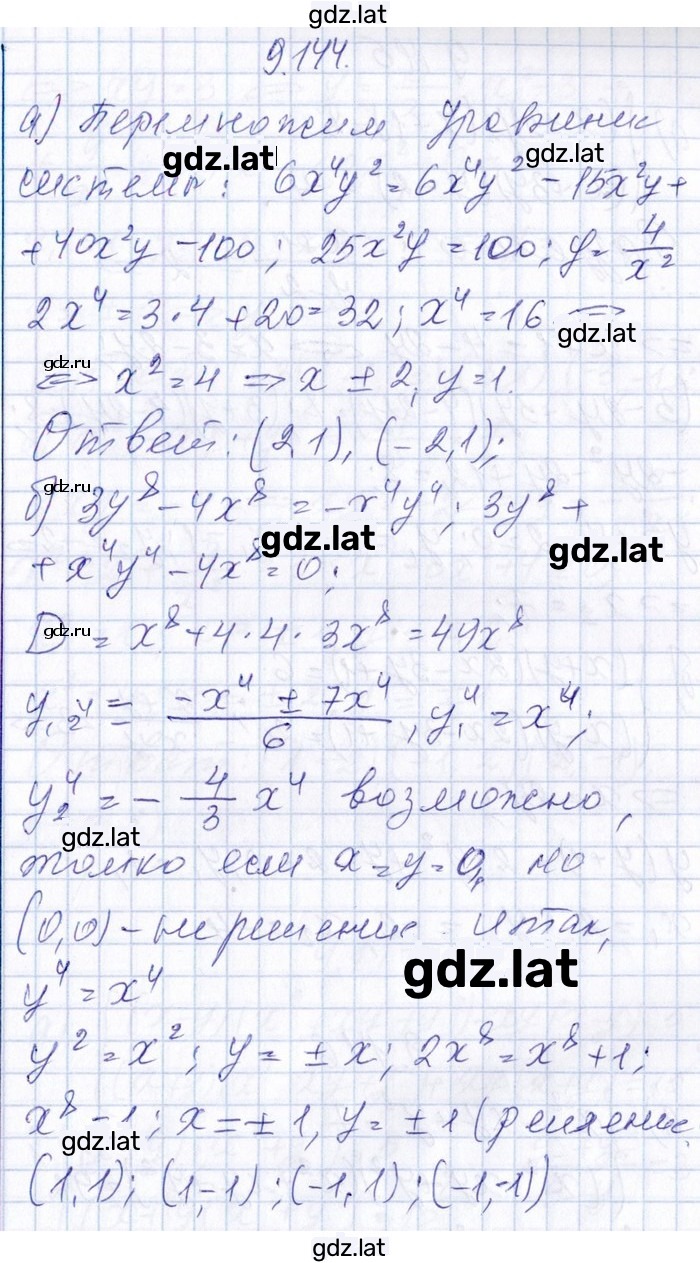 gdz.lat
9.144.
а) Перемножим уравнения
gdz.lat gdz.lat
системы: 6x⁴y² = 6x⁴y² - 15x²y +
+ 40x²y - 100; 25x²y = 100; y = 4/x²
2x⁴ = 3·4 + 20 = 32; x⁴ = 16 =>
gdz.lat
gdz.ru
=> x² = 4 => x ± 2, y = 1.
Ответ: (2,1), (-2,1);
gdz.ru
б) 3y⁸ - 4x⁸ = -x⁴y⁴; 3y⁸ +
gdz.lat gdz.lat
+ x⁴y⁴ - 4x⁸ = 0;
gdz.ru
D = x⁸ + 4·4·3x⁸ = 49x⁸
y₁,₂⁴ = (-x⁴ ± 7x⁴)/6, y₁⁴ = x⁴;
y₂⁴ = - 4/3 x⁴ возможно,
gdz.lat
только если x = y = 0, но
(0,0) - не решение. Итак,
gdz.lat
y⁴ = x⁴
y² = x²; y = ± x; 2x⁸ = x⁸ + 1;
x⁸ - 1; x = ± 1, y = ± 1 (решение
gdz.lat
(1,1); (1,-1); (-1,1); (-1,-1))
gdz.lat